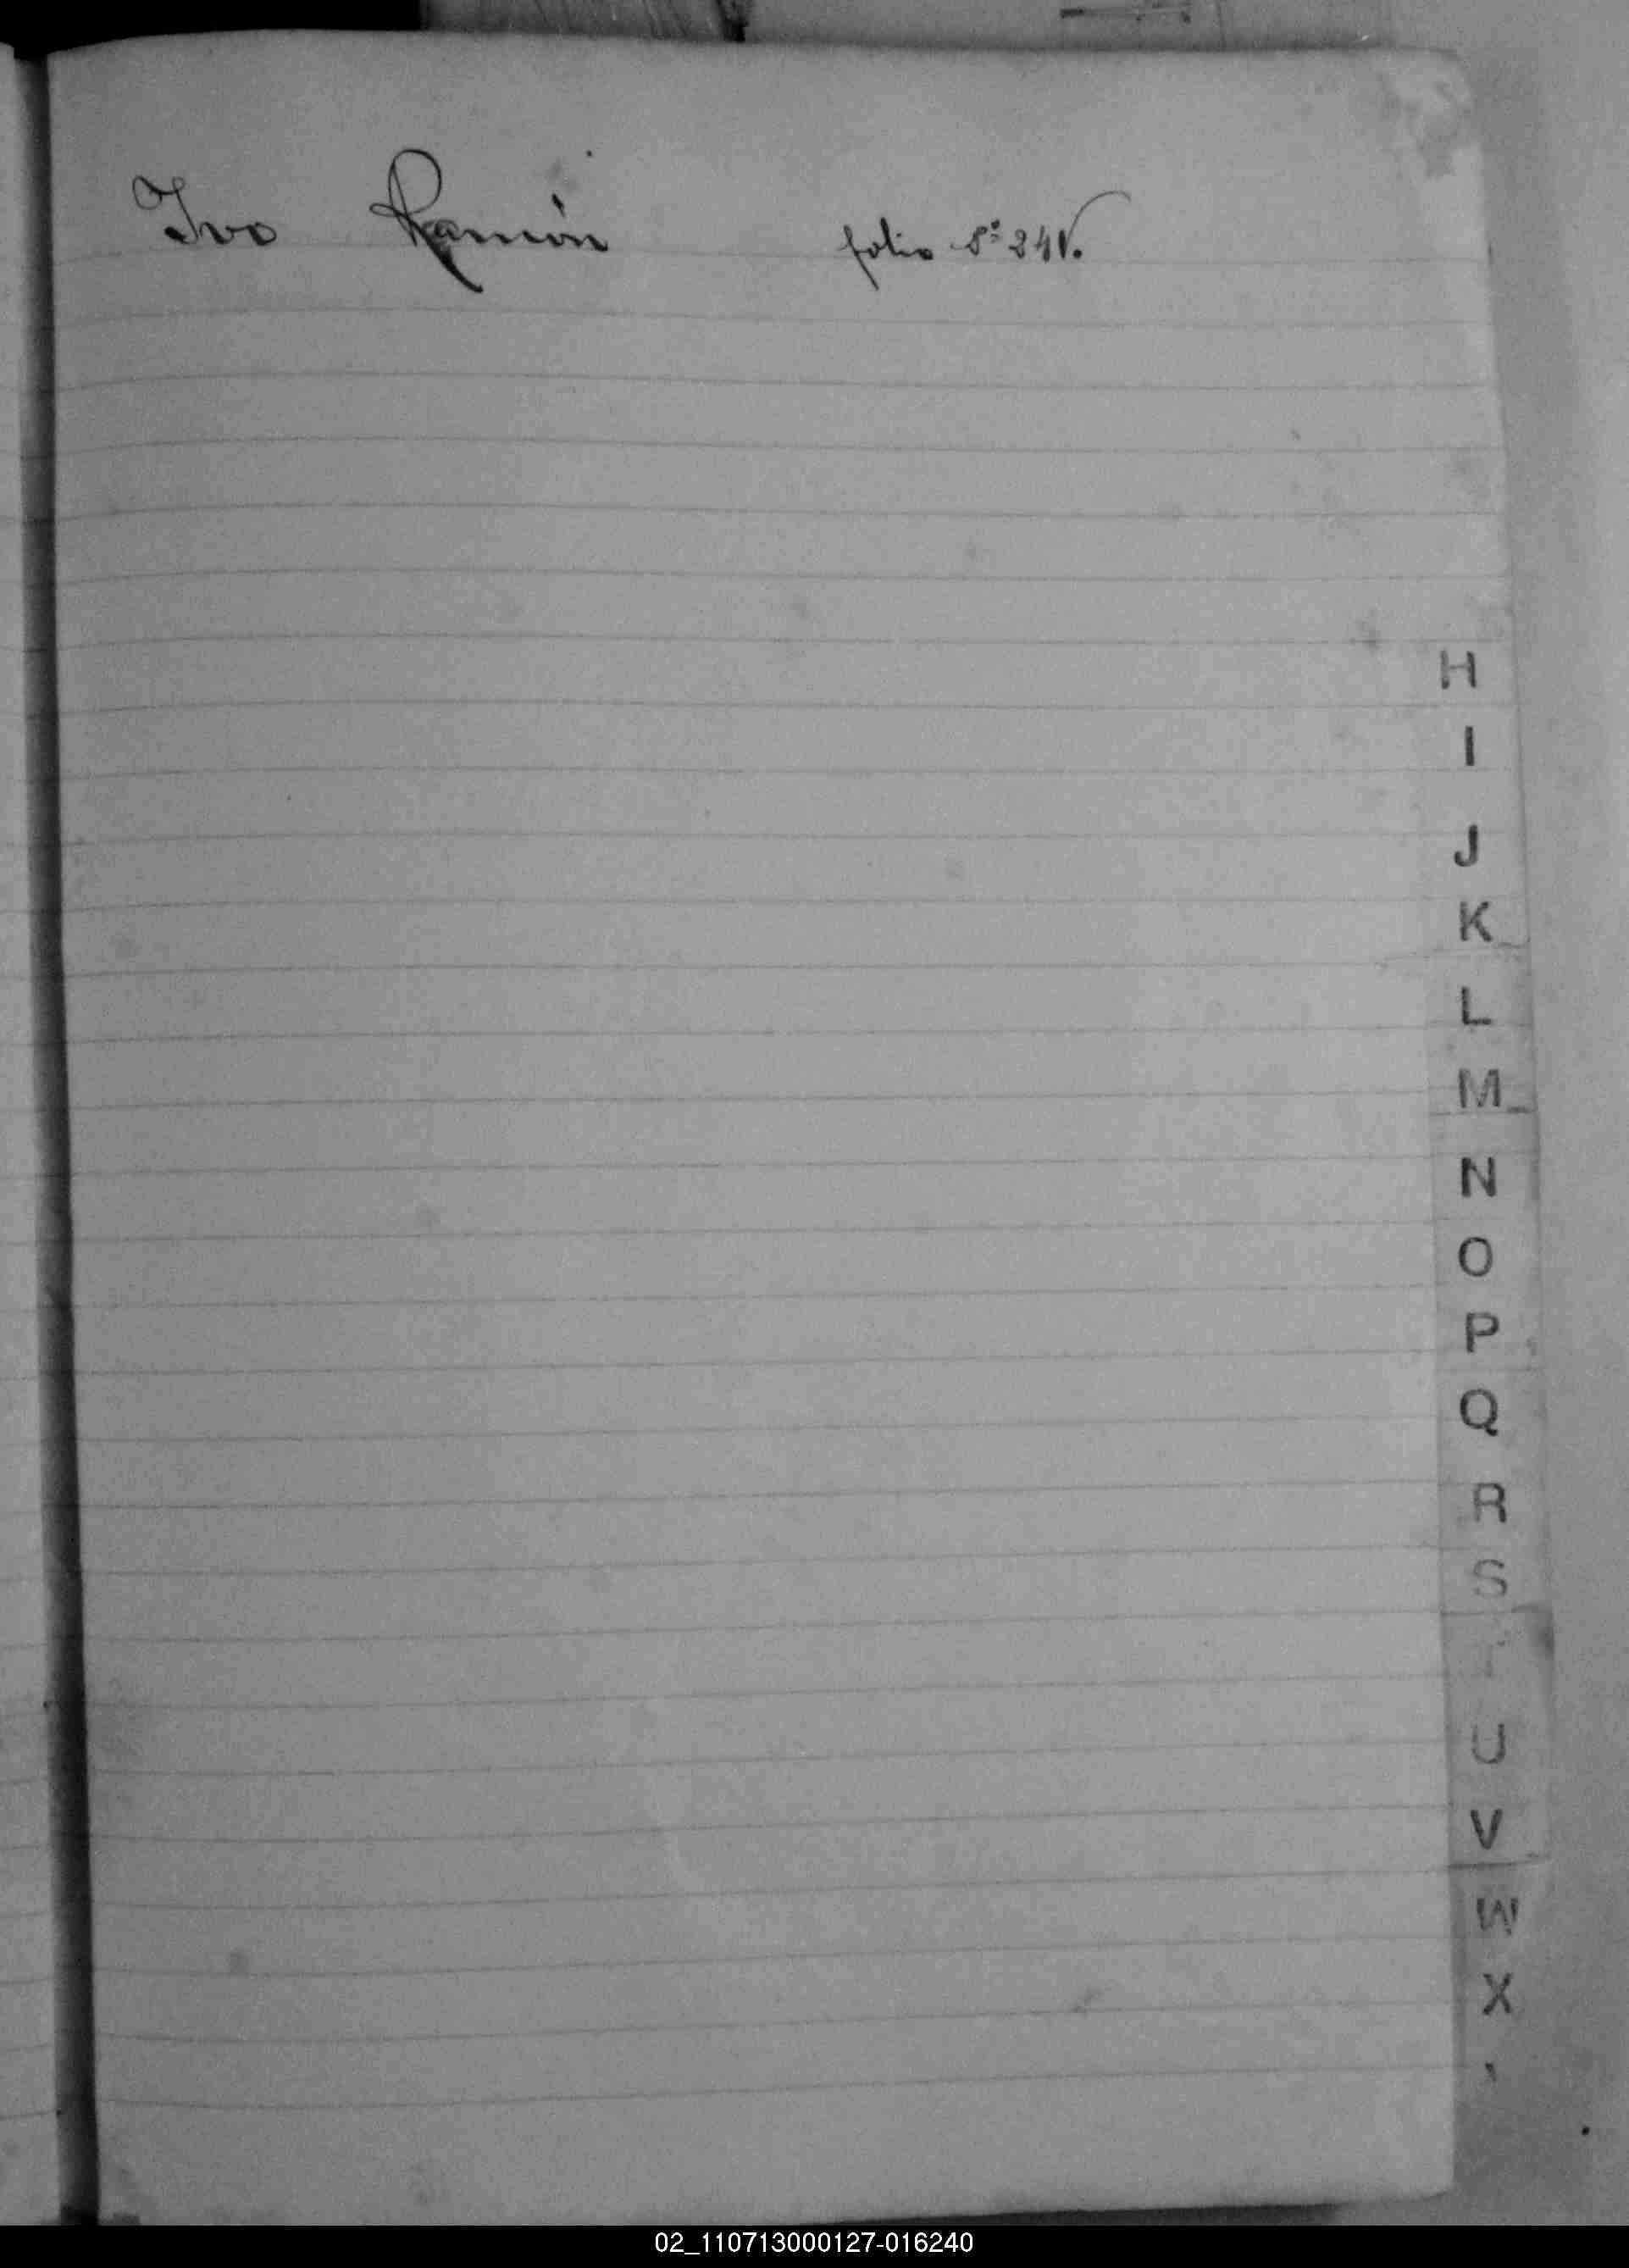 Ivo Ramón folio 8º 241.
H
I
J
K
L
M
N
O
P
Q
R
S
T
U
V
W
X
02_110713000127-016240